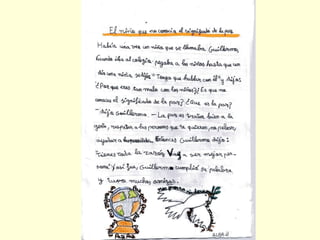 El niño que no conocía el significado de la paz
Había una vez un niño que se llamaba Guillermo,
Cuando iba al colegio pegaba a los niños hasta que un
día una niña se dijo "Tengo que hablar con él" y dijo:
¿Por qué eres tan malo con los niños? ¿Es que no
conoces el significado de la paz? ¿Qué es la paz?
- dijo Guillermo - La paz es tratar bien a la
gente, respetar a las personas que te quieren, no pelear,
ayudar a Entonces Guillermo dijo:
Tienes toda la razón Voy a ser mejor per-
sona Y así fue, Guillermo cumplió su palabra
y tuvo muchos amigos.